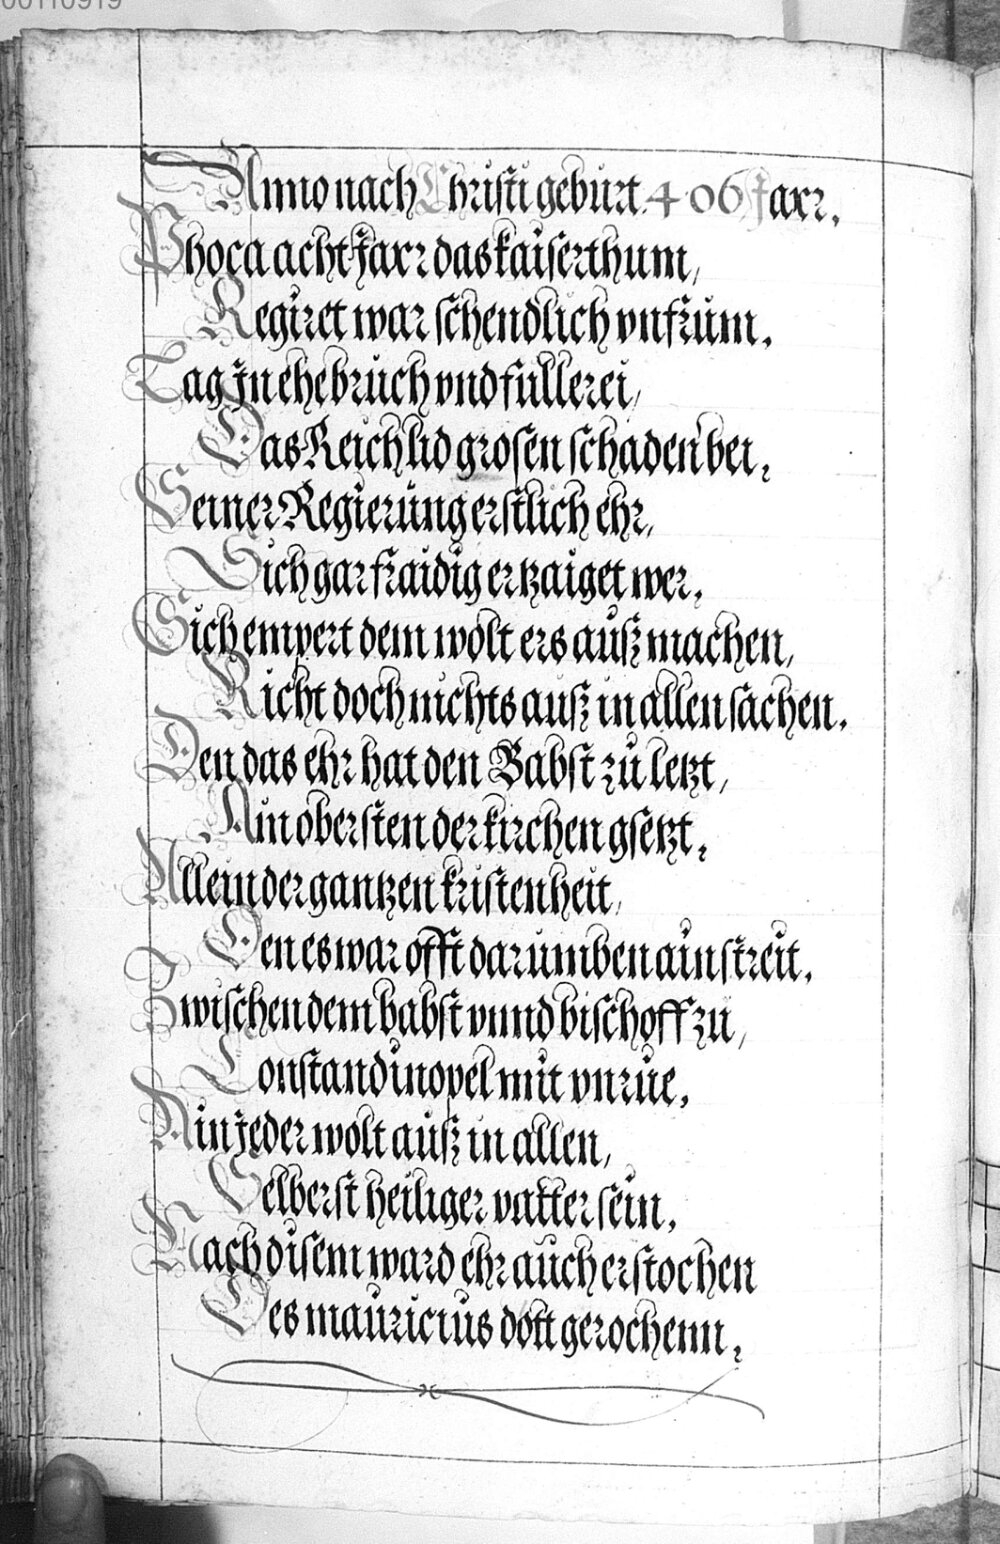 00110919
Anno nach Christi gebürt 406 Jaxr.
Phoca acht Jaxr das kaiserthum,
Regiret war schendlich vnfrüm.
Lag In ehebrüch vnd füllerei,
Das Reich lid grosen schaden bei,
Seiner Regierüng erstlich ehr,
Sich gar fraidig ertzaiget wer,
Sich empert dem wolt ers auß machen,
Richt doch nichts auß in allen sachen.
Den das ehr hat den Babst zü letzt,
Ain obersten der kirchen gsetzt,
Allein der gantzen kristenheit,
Den es war offt darümben ain streit.
Zwischen dem babst vnnd bischoff zü,
Constandinopel mit vnrüe,
Ain jeder wolt auß in allen,
Selberst heiliger vatter sein,
Nach disem ward ehr aüch erstochen
Des mauricius dott gerochenn,